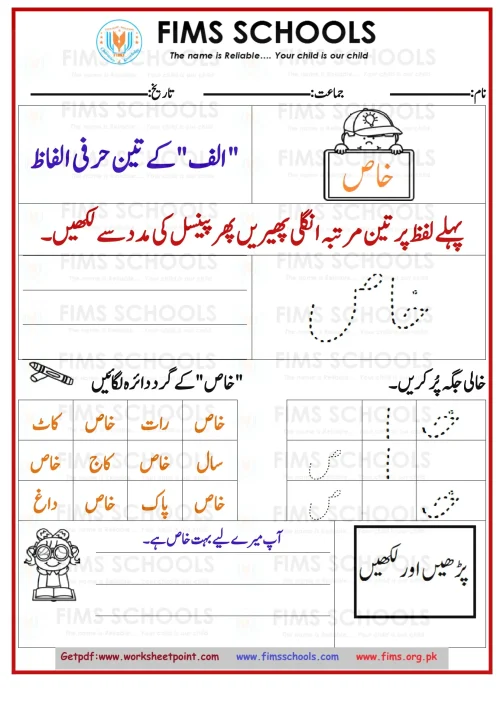 FIMS SCHOOLS
The name is Reliable.... Your child is our child
نام: جماعت: تاریخ:
خاص
"الف" کے تین حرفی الفاظ
پہلے لفظ پر تین مرتبہ انگلی پھیریں پھر پینسل کی مدد سے لکھیں۔
خاص
خالی جگہ پُر کریں۔
"خاص" کے گرد دائرہ لگائیں
خـ ا
ا ص
خـ ص
خاص رات خاص کاٹ
سال خاص کاج خاص
خاص پاک خاص داغ
پڑھیں اور لکھیں
آپ میرے لیے بہت خاص ہے۔
Getpdf:www.worksheetpoint.com www.fimsschools.com www.fims.org.pk